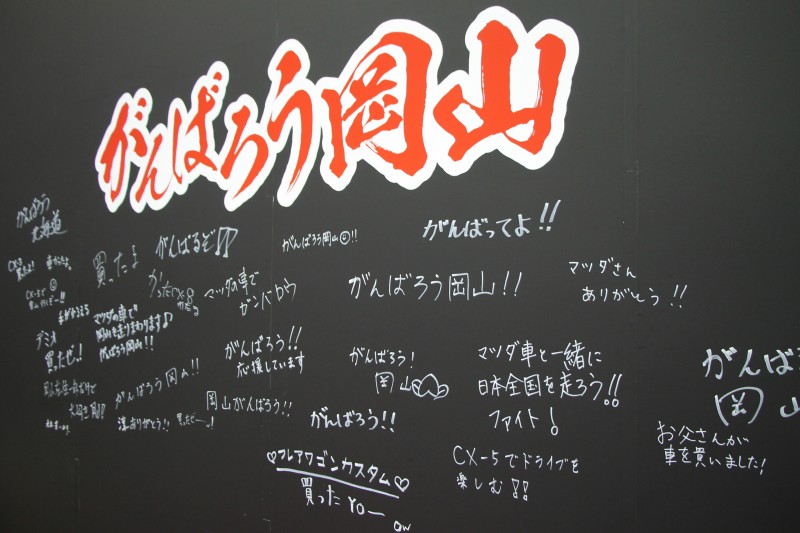 がんばろう岡山
がんばろう
北海道
買ったよ
がんばるぞ!!
がんばろう岡山!!
がんばってよ!!
マツダの車で
ガンバロウ
がんばろう岡山!!
マツダさん
ありがとう!!
デミオ
買ったぜ!
マツダの車で
岡山を走りまわります♪
がんばろう岡山!!
がんばろう!!
応援しています
がんばろう!
岡山
マツダ車と一緒に
日本全国を走ろう!!
ファイト!
がんば
岡山
がんばろう岡山!!
岡山がんばろう!!
がんばろう!!
ありがとう!!
お父さんが
車を買いました!
♡フレアワゴンカスタム♡
買ったYoー
CX-5でドライブを
楽しむ!!